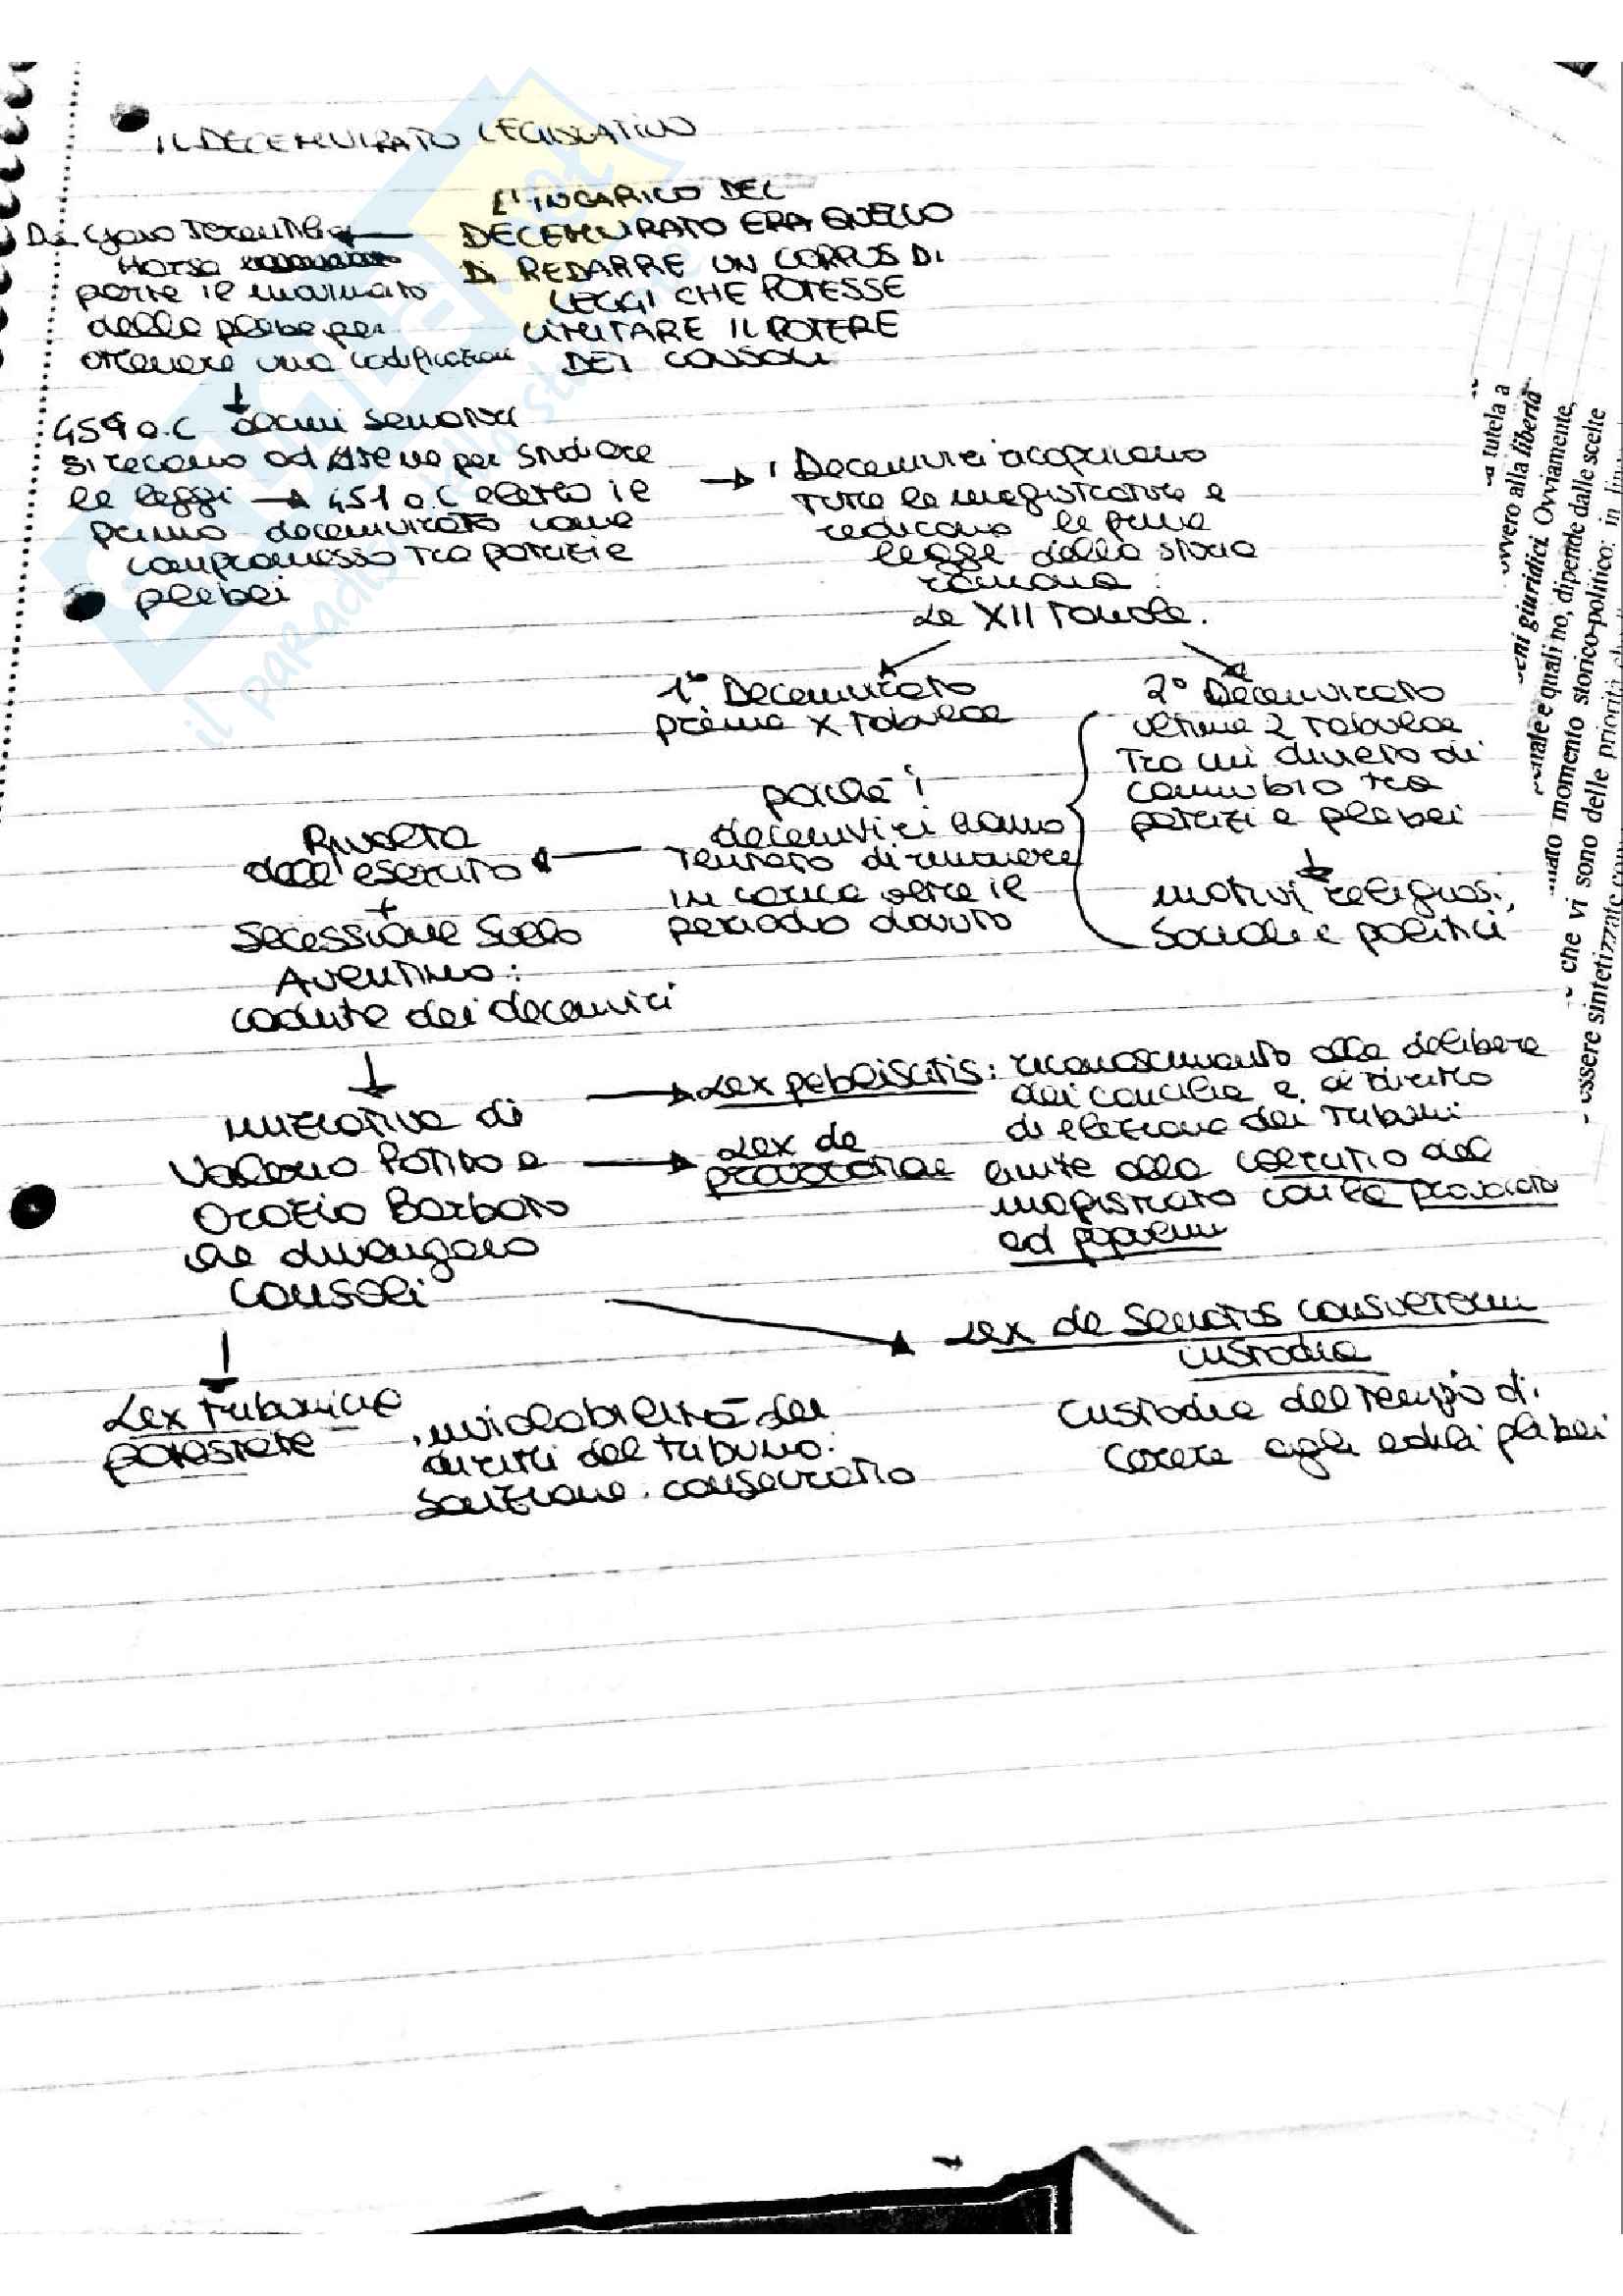 IL DECEMVIRATO LEGISLATIVO
L'INCARICO DEL
DECEMVIRATO ERA QUELLO
DI REDARRE UN CORPUS DI
LEGGI CHE POTESSE
LIMITARE IL POTERE
DEI CONSOLI
Da Gaio Terentilio
Harsa
parte il
della plebe per
ottenere una codificazione
454 a.C alcuni senatori
si recano ad Atene per studiare
le leggi → 451 a.C eletto il
primo decemvirato come
compromesso tra patrizi e
plebei
→ i Decemviri ricoprivano
tutte le magistrature e
redicono le prime
legge della storia
romana:
Le XII Tavole.
1° Decemvirato
prime X tabulae
2° Decemvirato
ultime 2 tabulae
tra cui divieto di
connubio tra
patrizi e plebei
motivi religiosi,
sociali e politici
poiché i
decemviri hanno
tentato di rimanere
in carica oltre il
periodo dovuto
Rivolta
dell'esercito
+
Secessione sullo
Aventino:
cadute dei decemviri
iniziativa di
Valerio Potito e
Orazio Barbato
che divengono
consoli
→ Lex pebliscitis: riconoscimento alle delibere
dei concilia e al diritto
di elezione dei tribuni
→ Lex de
provocatione
limite alla coercitio del
magistrato con la provocatio
ad populum
Lex de senatus consultorum
custodia
Custodia del tempio di
Cerere agli edili plebei
Lex tribunicia
potestate
inviolabilità dei
diritti del tribuno:
sanzione: consecratio
tutela a
ovvero alla libertà
beni giuridici. Ovviamente,
e quali no, dipende dalle scelte
momento storico-politico: in
che vi sono delle priorità
essere sintetizzate
il paradiso dello studente